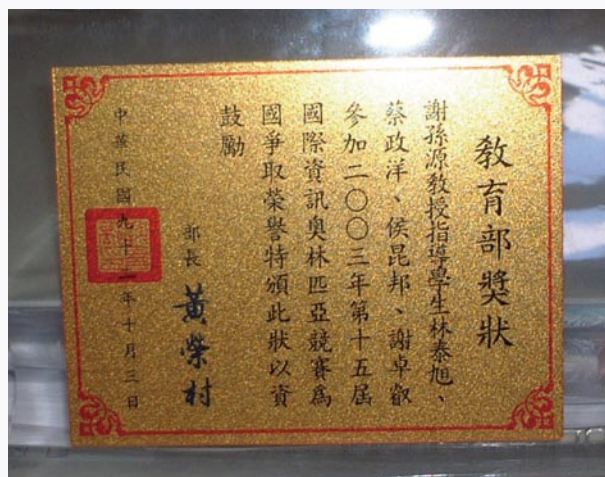 教育部獎狀
謝孫源教授指導學生林泰旭、
蔡政洋、侯昆邦、謝卓叡
參加二〇〇三年第十五屆
國際資訊奧林匹亞競賽為
國爭取榮譽特頒此狀以資
鼓勵
部長 黃榮村
中華民國九十二年十月三日